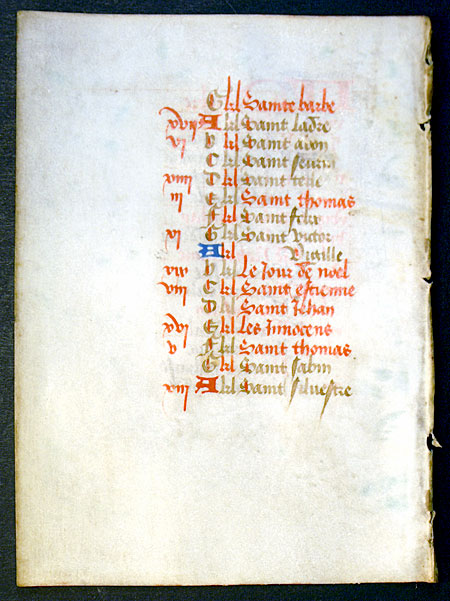 G kl Sainte barbe
xvii A kl Saint ladre
vi b kl Saint
C kl Saint seurin
xiiii D kl Saint
iii E kl Saint thomas
F kl Saint felix
xi G kl Saint victor
A kl Vigille
xix b kl Le Jour de noel
viii C kl Saint estienne
D kl Saint Jehan
xvi E kl Les Innocens
v F kl Saint thomas
G kl Saint sabin
xiii A kl Saint silvestre